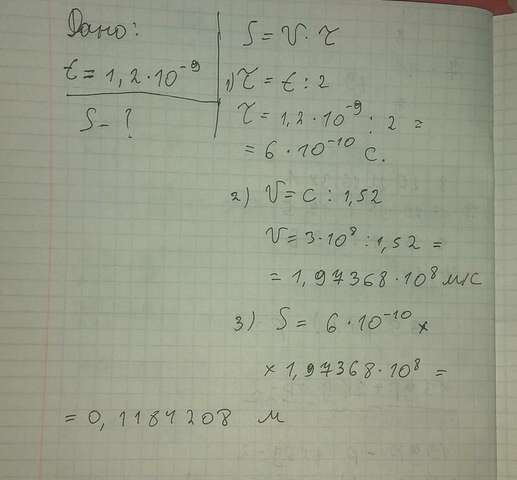 Дано:
t = 1,2·10⁻⁹
S - ?
S = V · τ
1) τ = t : 2
τ = 1,2·10⁻⁹ : 2 =
= 6 · 10⁻¹⁰ с.
2) V = c : 1,52
V = 3·10⁸ : 1,52 =
= 1,97368·10⁸ м/с
3) S = 6·10⁻¹⁰ ×
× 1,97368·10⁸ =
= 0,1184208 м